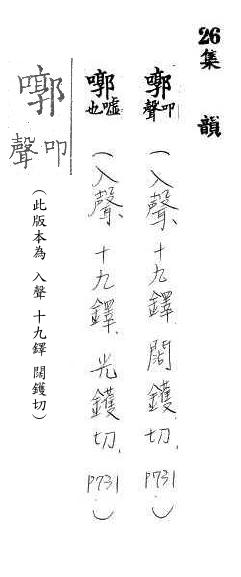 26
集韻
嘟 聲叩
(入聲、十九鐸、闊鑊切, P731)
嘟 也嘘
(入聲、十九鐸、光鑊切, P731)
嘟
聲叩
(此版本為 入聲 十九鐸 闊鑊切)